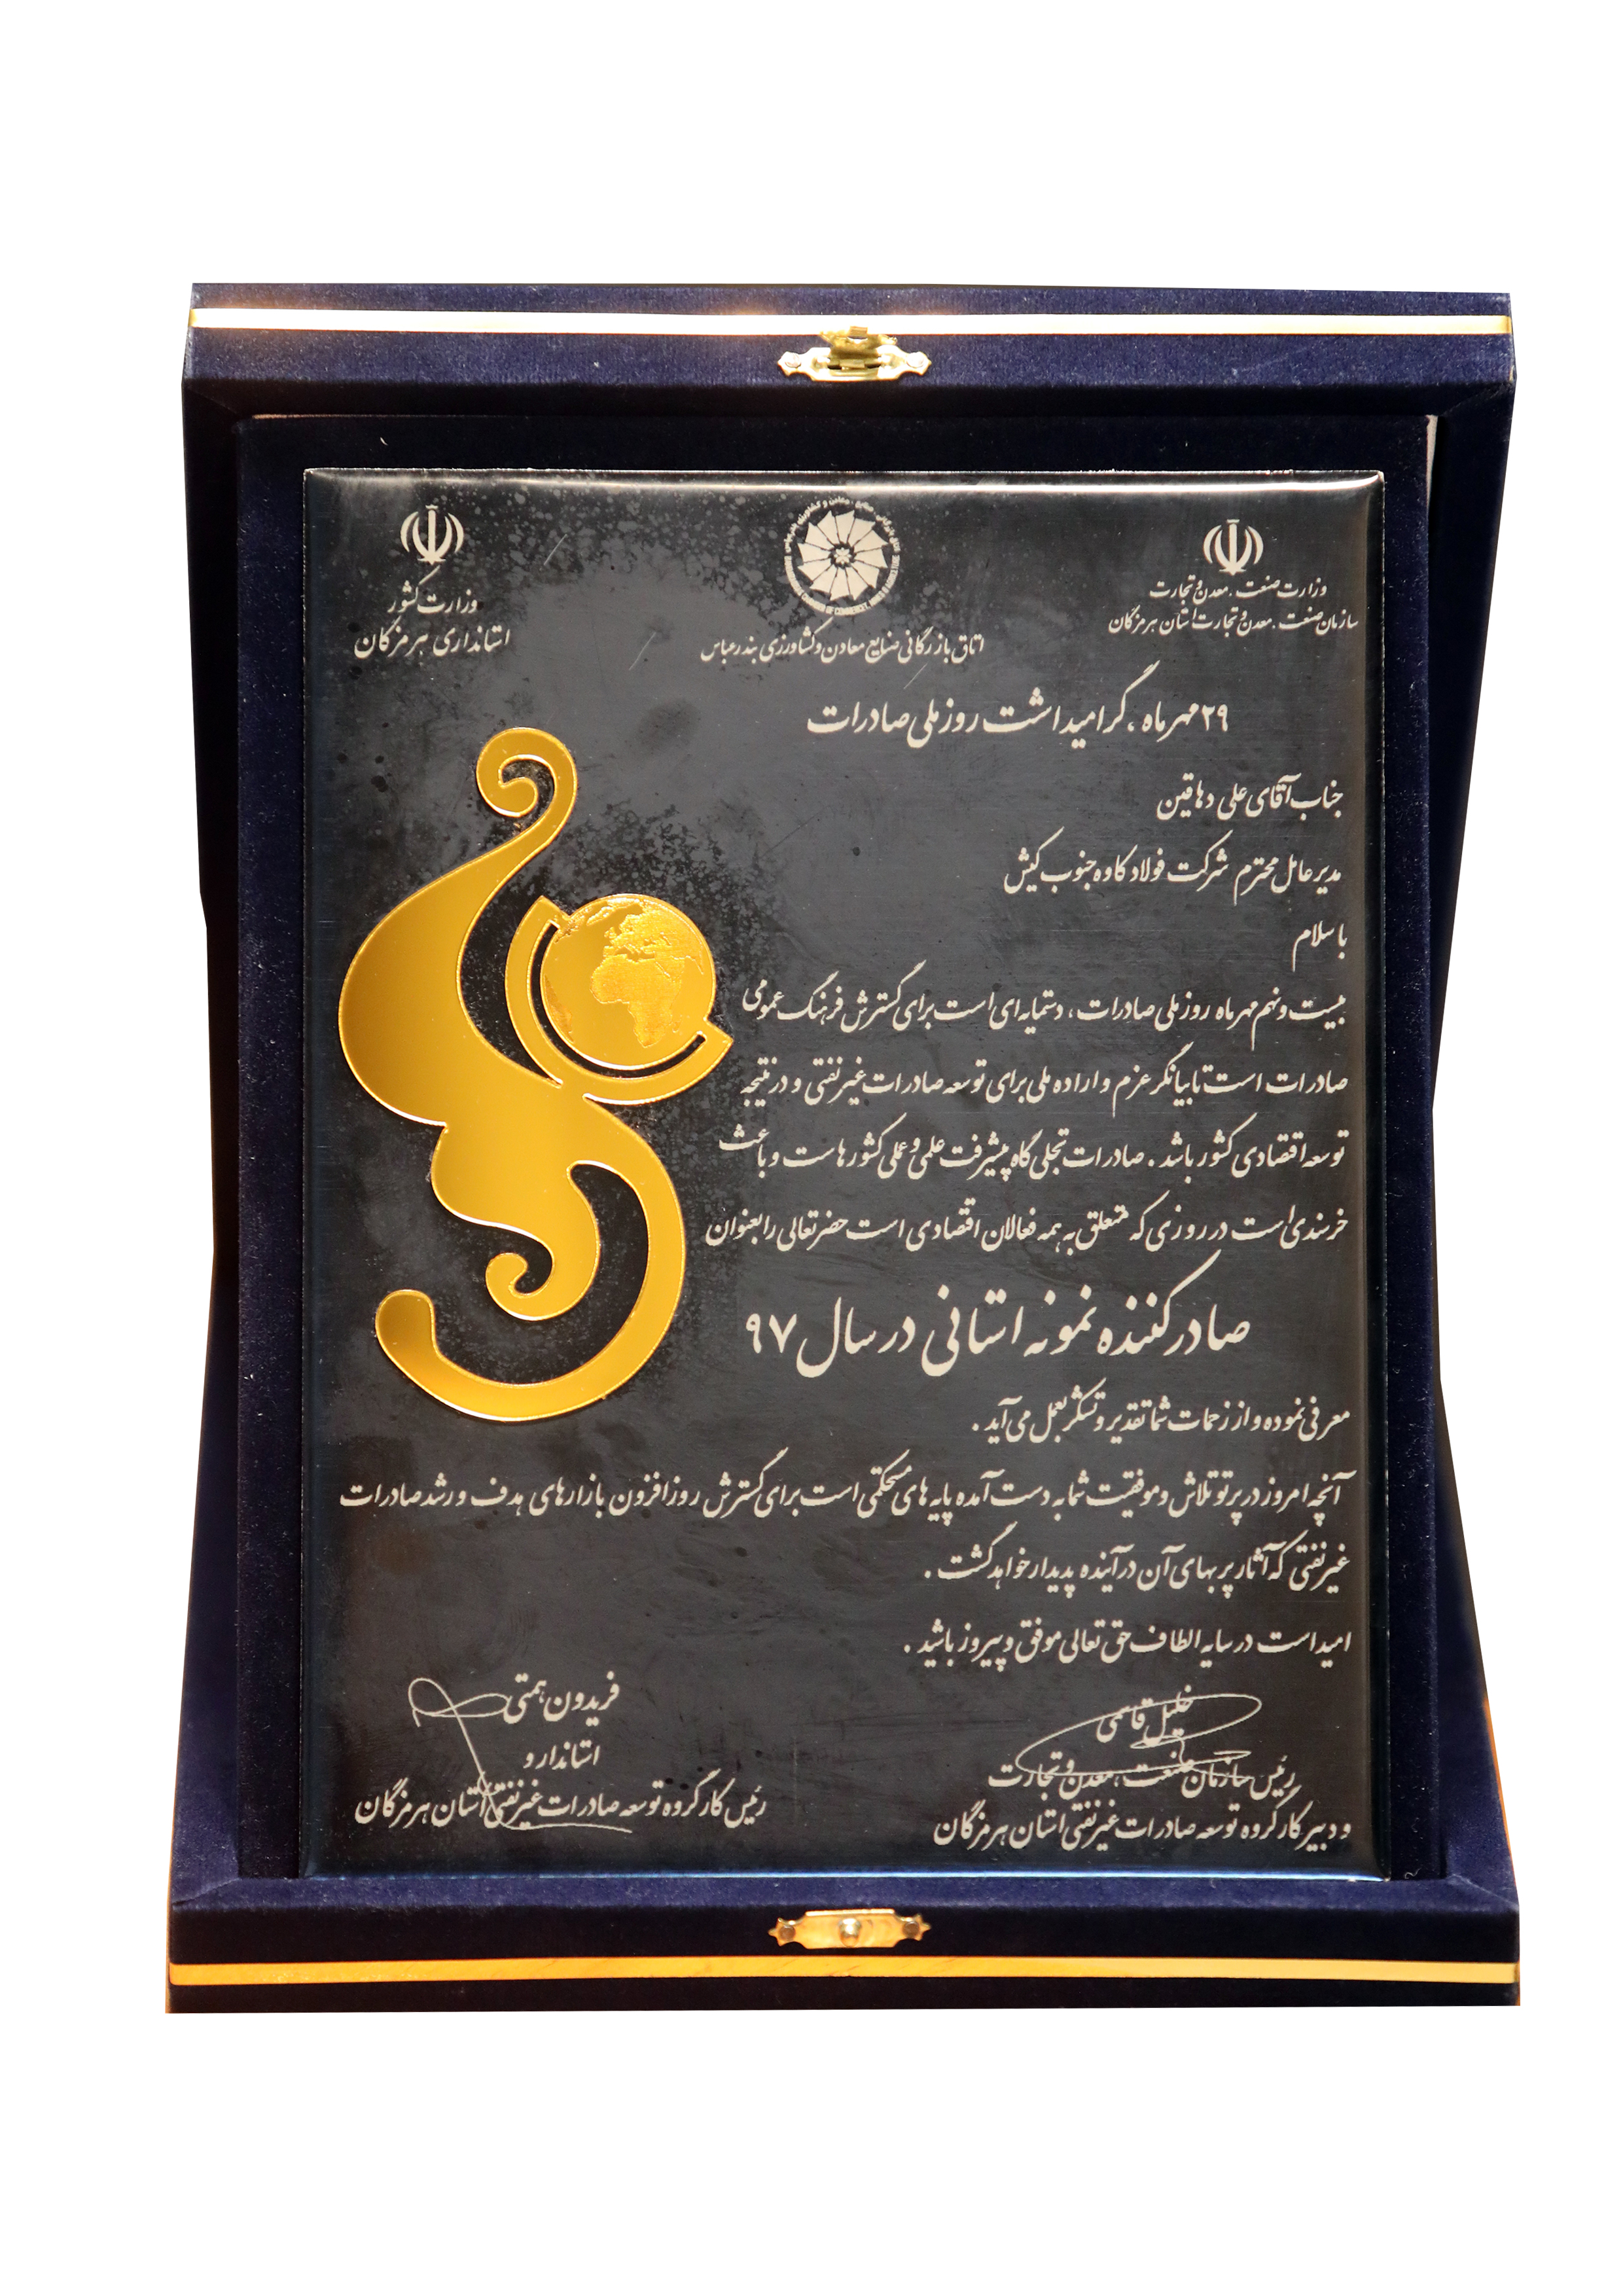 وزارت صنعت، معدن و تجارت
سازمان صنعت، معدن و تجارت استان هرمزگان
اتاق بازرگانی صنایع معادن و کشاورزی بندرعباس
وزارت کشور
استانداری هرمزگان
۲۹ مهرماه، گرامیداشت روز ملی صادرات
جناب آقای علی دهاقین
مدیر عامل محترم شرکت فولاد کاوه جنوب کیش
با سلام
بیست و نهم مهرماه روز ملی صادرات، دستمایه ای است برای گسترش فرهنگ عمومی
صادرات است تا بیانگر عزم و اراده ملی برای توسعه صادرات غیر نفتی و در نتیجه
توسعه اقتصادی کشور باشد. صادرات تجلی گاه پیشرفت علمی و عملی کشورهاست و باعث
خرسندی است در روزی که متعلق به همه فعالان اقتصادی است حضرتعالی را بعنوان
صادرکننده نمونه استانی در سال ۹۷
معرفی نموده و از زحمات شما تقدیر و تشکر بعمل می آید.
آنچه امروز در پرتو تلاش و موفقیت شما به دست آمده پایه های مستحکمی است برای گسترش روز افزون بازارهای هدف و رشد صادرات
غیر نفتی که آثار پر بهای آن در آینده پدیدار خواهد گشت.
امید است در سایه الطاف حق تعالی موفق و پیروز باشید.
خلیل قاسمی
رئیس سازمان صنعت، معدن و تجارت
و دبیر کارگروه توسعه صادرات غیر نفتی استان هرمزگان
فریدون همتی
استاندار و
رئیس کارگروه توسعه صادرات غیر نفتی استان هرمزگان